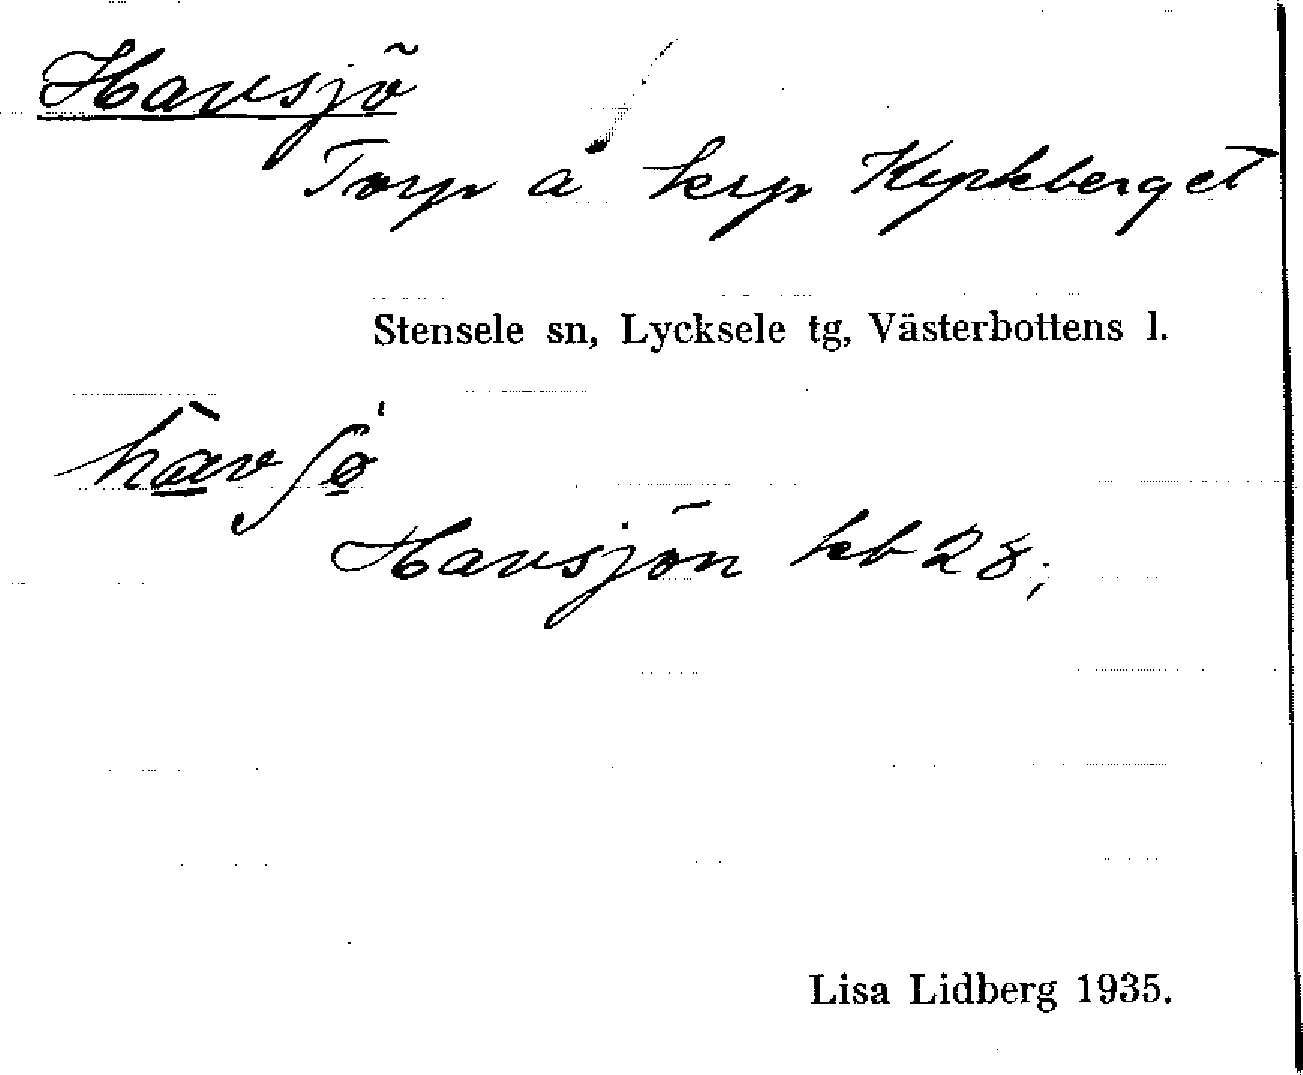 Havsjö
Torp å krp Kyrkberget
Stensele sn, Lycksele tg, Västerbottens l.
Havsjön kb 28;
Lisa Lidberg 1935.